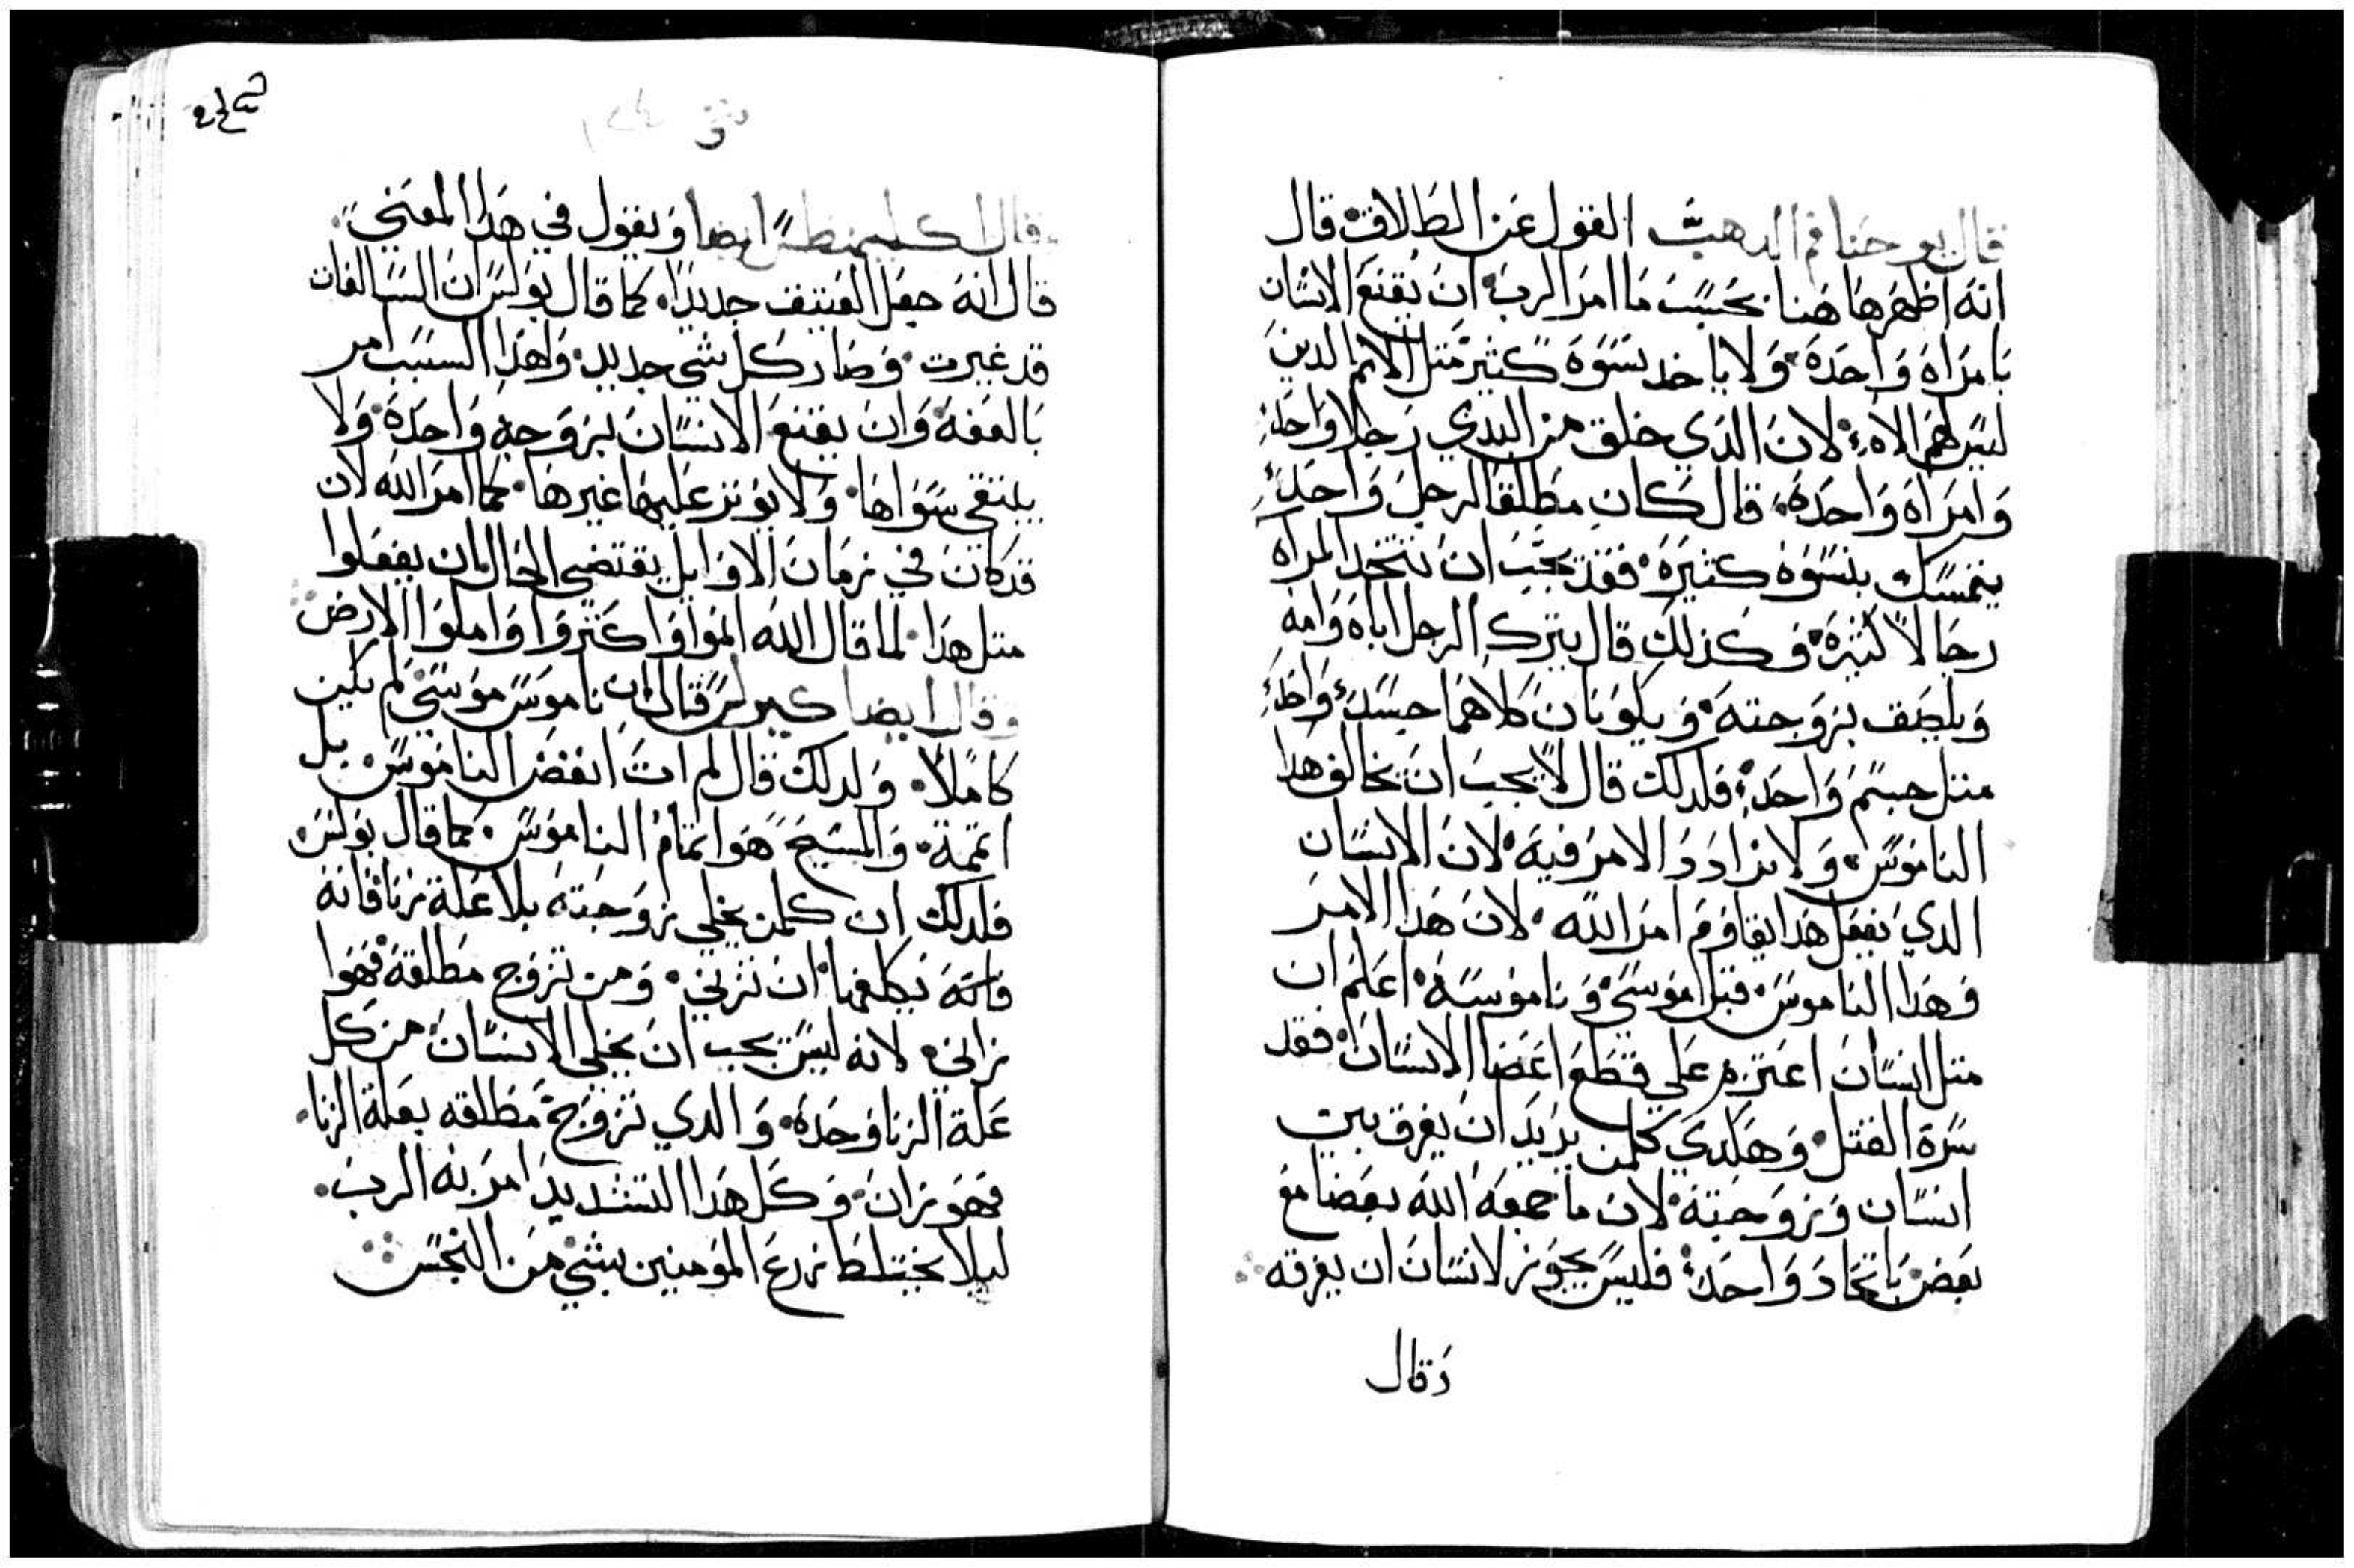 قال يوحنا فم الدهب القول عن الطلاق قال
انه اظهرها هنا بحسب ما امر الرب ان يقنع الانسان
بامراه واحده ولا ياخد نسوه كثير متل الامم الدين
ليس لهم الاه لان الدي خلق من البدي رجلا واحد
وامراه واحده قال كان مطلقا لرجل واحد
يتمسك بنسوه كثيره فقد يجب ان تتخد المراه
رجالا كثيره وكذلك قال يترك الرجل اباه وامه
ويلصق بزوجته ويكونان كلاهما جسد واحد
متل جسم واحد فلدلك قال لا يجب ان تخالف هدا
الناموس ولا تزادد الامر فيه لان الانسان
الدي يفعل هدا يقاوم امر الله لان هدا الامر
وهدا الناموس قبل موسي وناموسه اعلم ان
متل انسان اعتزم علي قطع اعضا الانسان فقد
سره القتل وهكدي كلمن يريد ان يفرق بين
انسان وزوجته لان ما جمعه الله بعضا مع
بعض باتحاد واحد فليس يجوز لانسان ان يفرقه
وقال
متى
قال اكليمنطس ايضا ويقول في هدا المعني
قال انه جعل العتيق جديدا كما قال بولس ان السالفات
قد غيرت وصار كل شي جديد ولهدا السبب امر
بالعفه وان يقنع الانسان بزوجه واحده ولا
يلتقي سواها ولا يوتر عليها غيرها كما امر الله لان
قد كان في زمان الاوايل يقتضي الحال ان يفعلوا
متل هدا لما قال الله انموا واكتروا واملوا الارض
وقال ايضا كيرلس قال ان ناموس موسي لم يكن
كاملا ولدلك قال لم ات انقض الناموس بل
اتممه والمسيح هوا تمام الناموس كما قال بولس
فلدلك ان كلمن يخلي زوجته بلا علة زنا فانه
فانه يكلفها ان تزني ومن تزوج مطلقة فهوا
زاني لانه ليس يجب ان يخلي الانسان من كل
علة الزنا وحده والدي تزوج مطلقه بعلة الزنا
فهو زان وكل هدا التشديد امر به الرب
ليلا يختلط زرع المومنين بشي من النجس